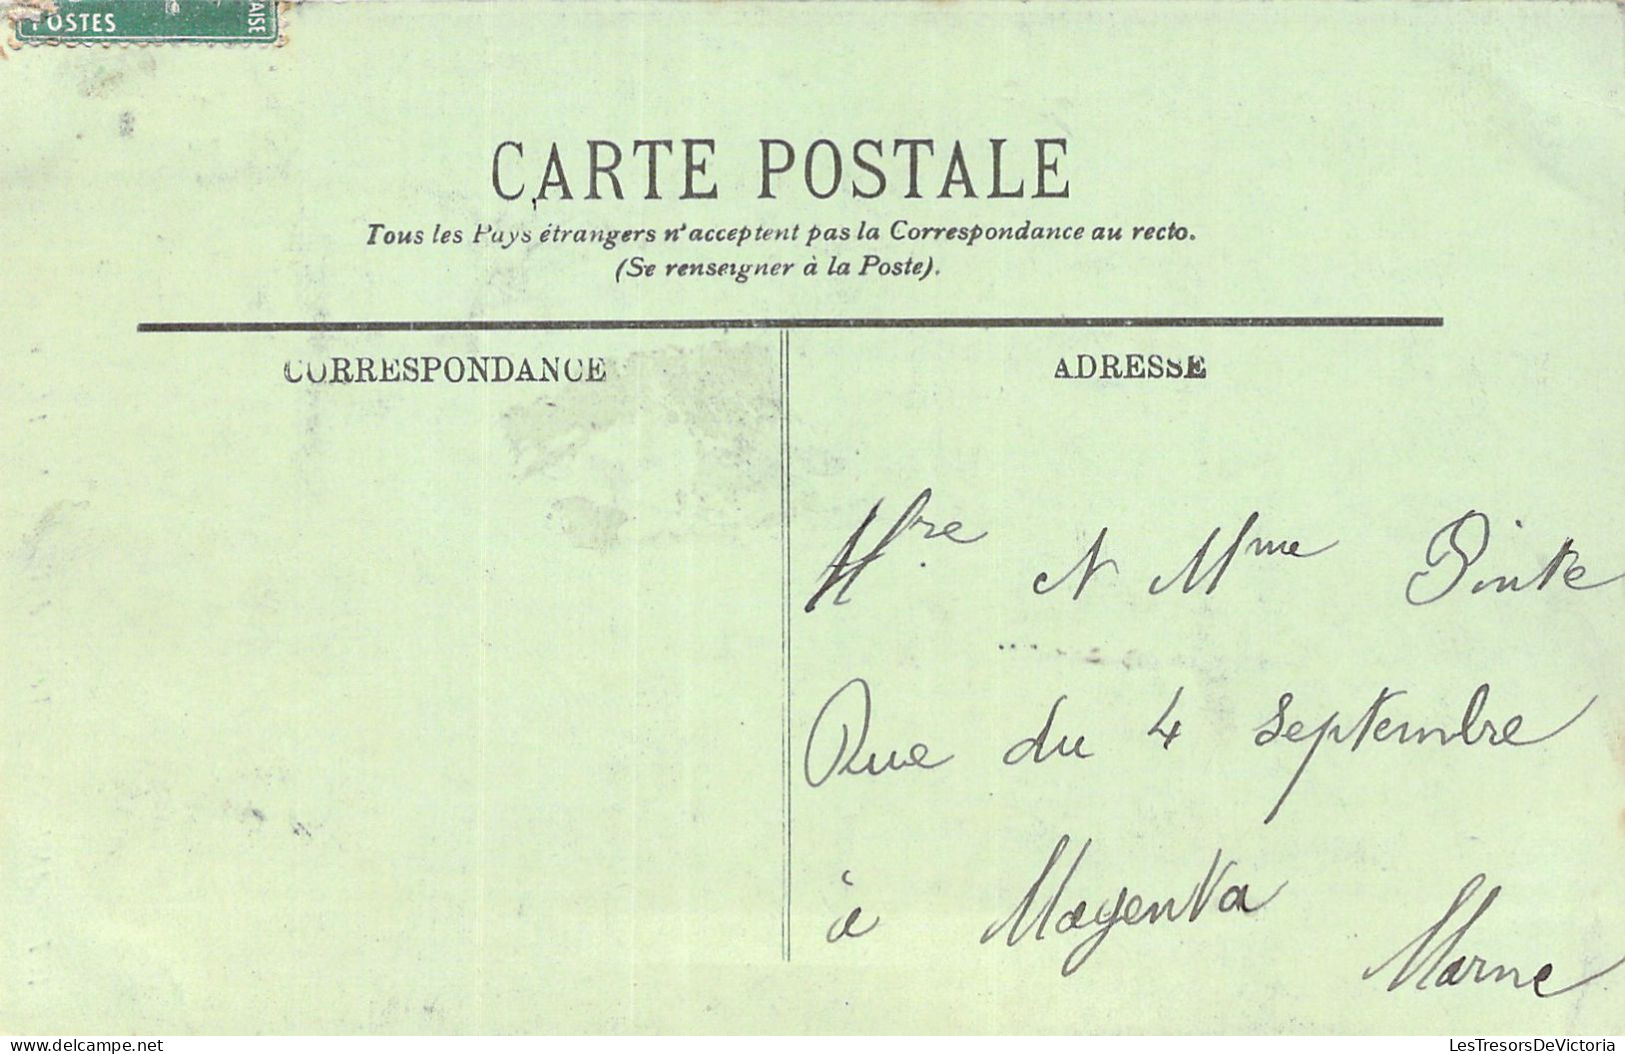 POSTES
AISE
CARTE POSTALE
Tous les Pays étrangers n'acceptent pas la Correspondance au recto.
(Se renseigner à la Poste).
CORRESPONDANCE
ADRESSE
Mre et Mme Pinte
Rue du 4 Septembre
à Magenta
Marne
www.delcampe.net
LesTresorsDeVictoria